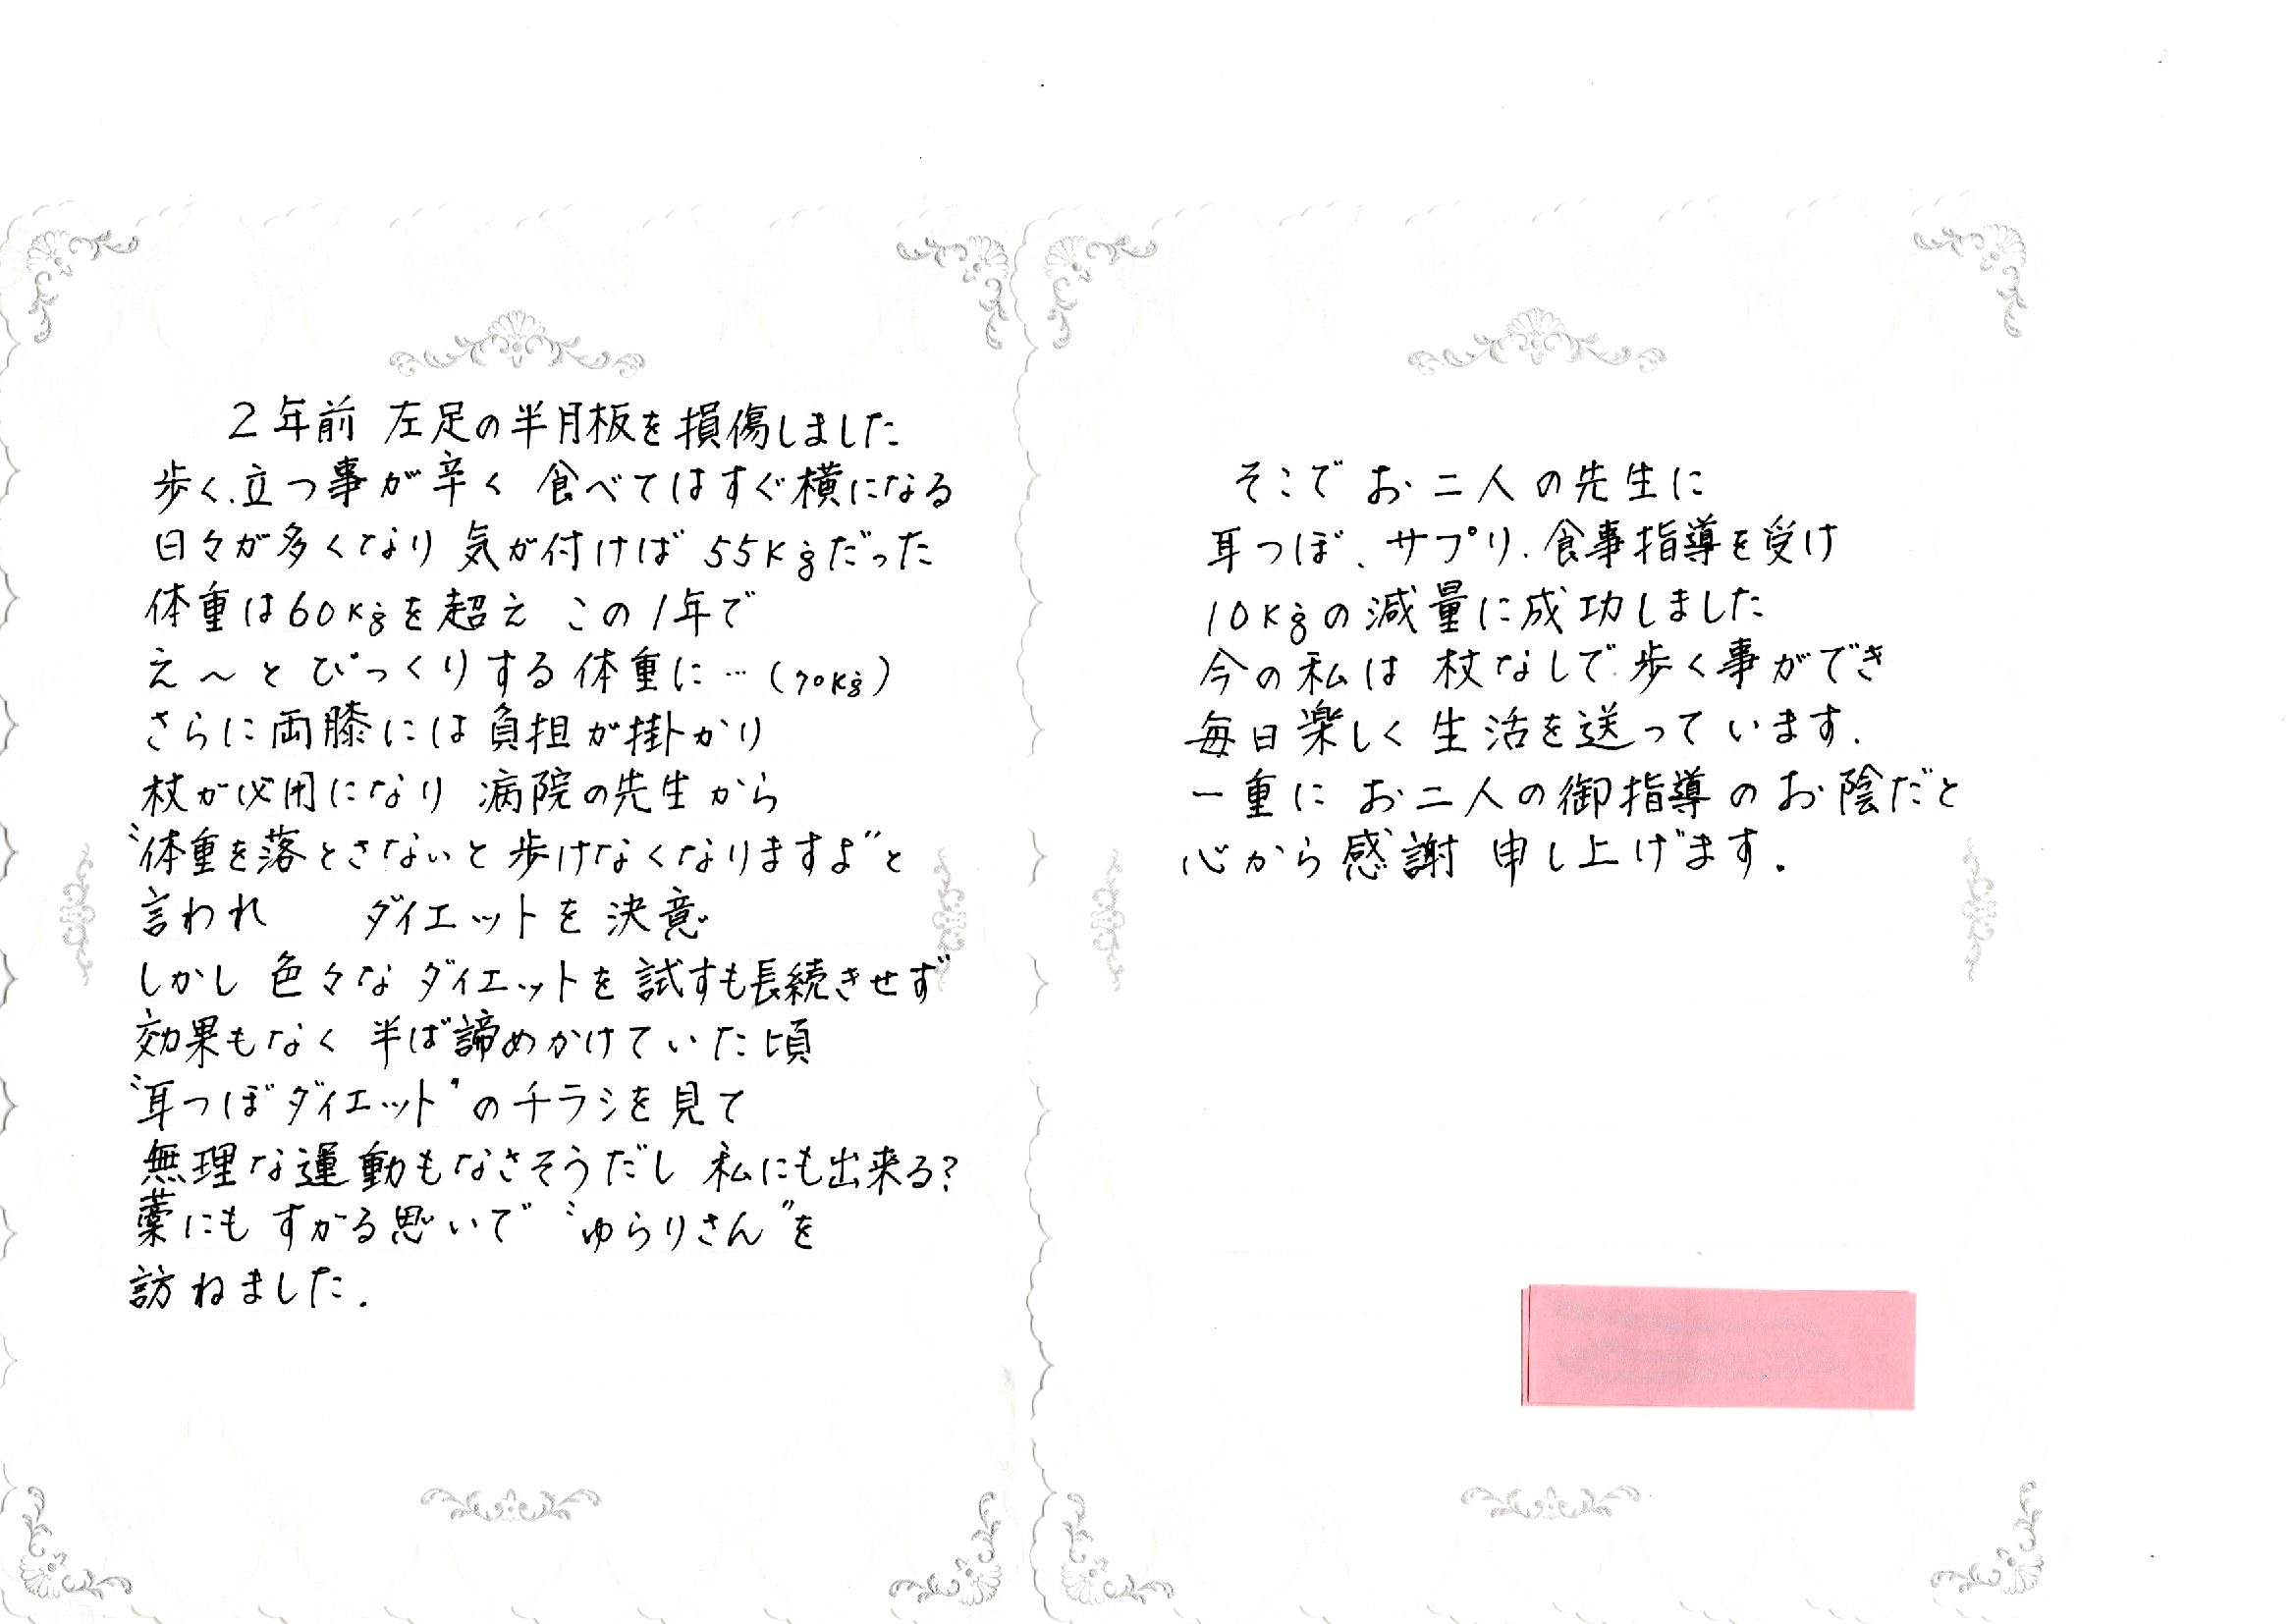 2年前 左足の半月板を損傷しました
歩く、立つ事が辛く 食べてはすぐ横になる
日々が多くなり 気が付けば 55Kgだった
体重は60Kgを超え この1年で
え～と びっくりする体重に…(70Kg)
さらに両膝には負担が掛かり
杖が必用になり 病院の先生から
"体重を落とさないと歩けなくなりますよ"と
言われ ダイエットを決意
しかし 色々なダイエットを試すも長続きせず
効果もなく 半ば諦めかけていた頃
"耳つぼダイエット"のチラシを見て
無理な運動もなさそうだし 私にも出来る?
藁にもすがる思いで "ゆらりさん"を
訪ねました.
そこで お二人の先生に
耳つぼ、サプリ、食事指導を受け
10Kgの減量に成功しました
今の私は 杖なしで歩く事ができ
毎日楽しく生活を送っています.
一重に お二人の御指導のお陰だと
心から感謝申し上げます.